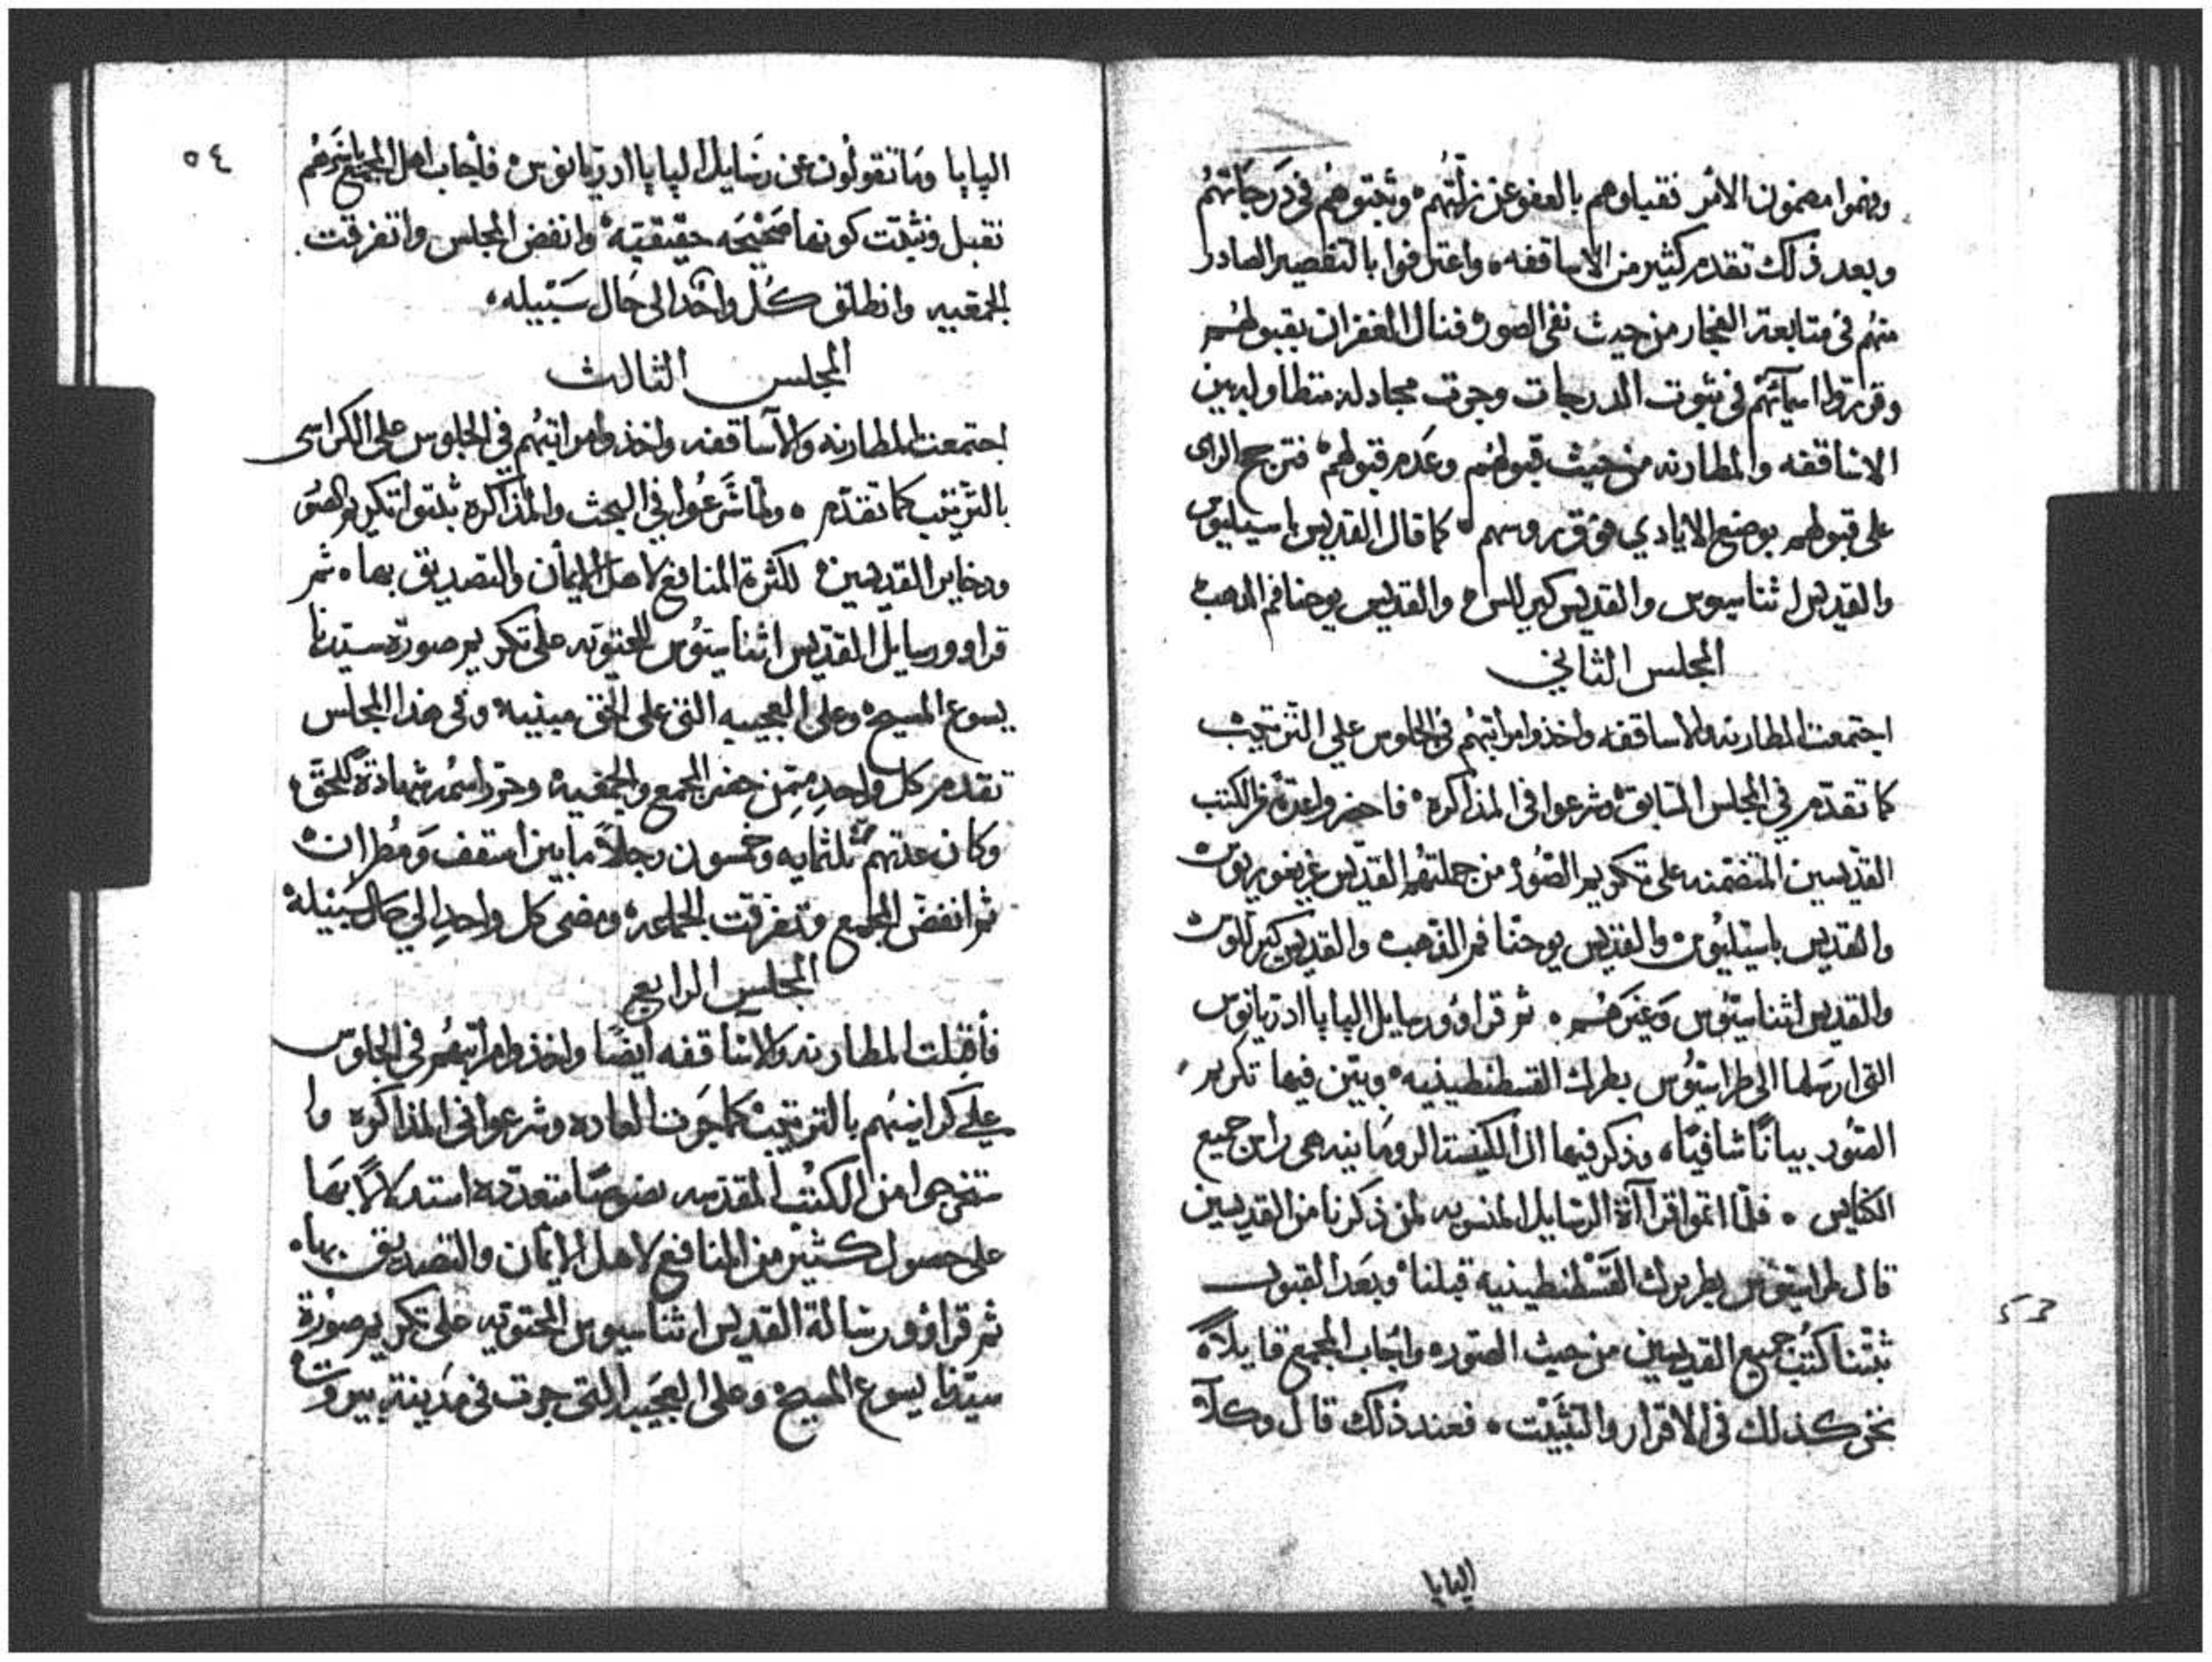 وفهموا مضمون الامر فقبلوهم بالعفو عن زلتهم وثبتوهم في درجاتهم
وبعد ذلك تقدم كثير من الاساقفه واعترفوا بالتقصير الصادر
منهم في متابعة الفجار من حيث نفي الصور فنال الغفران بقبولهم
وقرروا اسمائهم في ثبوت الدرجات وجرت مجادله متطاوله بين
الاساقفه والمطارنه من حيث قبولهم وعدم قبولهم فترجح الراى
على قبولهم بوضع الايادي فوق روسهم كما قال القديس باسيليوس
والقديس اثناسيوس والقديس كيرللس والقديس يوحنا فم الدهب
المجلس الثاني
اجتمعت المطارنه والاساقفه واخذوا مراتبهم في الجلوس علي الترتيب
كما تقدم في المجلس السابق وشرعوا في المذاكره فاحضروا عدة من الكتب
القديسين المتضمنه على تكريم الصور من جملتهم القديس غريغوريوس
والقديس باسيليوس والقديس يوحنا فم الذهب والقديس كيرللوس
والقديس اثناسيوس وغيرهم ثم قراوو رسايل البابا ادريانوس
التي ارسلها الى طراسيوس بطرك القسطنطينيه وبين فيها تكريم
الصور بيانًا شافيًا وذكر فيها ان الكنيسة الرومانيه هى راس جميع
الكنايس فلما اتموا قراآة الرسايل المنسوبه لمن ذكرنا من القديسين
قال طراسيوس بطريرك القسطنطينية قبلنا وبعد القبول
ثبتنا كتب جميع القديسين من حيث الصوره واجاب المجمع قايلاً
نحن كذلك في الاقرار والتثبيت فعند ذلك قال وكلآ
البابا
٥٣
٥٤
البابا وما تقولون عن رسايل البابا ادريانوس فاجاب اهل المجمع باسرهم
نقبل ونثبت كونها صحيحه حقيقيه وانفض المجلس واتفرقت
الجمعيه وانطلق كل واحد الى حال سبيله
المجلس الثالث
اجتمعت المطارنه والآساقفه واخذوا مراتبهم في الجلوس على الكراسى
بالترتيب كما تقدم ولما شرعوا في البحث والمذاكره ثبتوا تكريم الصور
ودخاير القديسين لكثرة المنافع لاهل الايمان والتصديق بها ثم
قراوو رسايل القديس اثناسيوس المحتويه على تكريم صورة سيدنا
يسوع المسيح وعلى العجيبه التي على الحق مبنيه وفي هذا المجلس
تقدم كل واحدٍ ممن حضر المجمع والجمعيه وحرر اسمه شهادة للحق
وكان عدتهم ثلثمايه وخمسون رجلاً ما بين اسقف ومطران
ثم انفض المجمع وتفرقت الجماعه ومضى كل واحدٍ الي حال سبيله
المجلس الرابع
فأقبلت المطارنه والاساقفه ايضًا واخذوا مراتبهم في الجلوس
علي كراسيهم بالترتيب كما جرت العاده وشرعوا في المذاكره وا
ستخرجوا من الكتب المقدسه نصوصًا متعدده استدلالاً بها
على حصول كثير من المنافع لاهل الايمان والتصديق بها
ثم قراوو رسالة القديس اثناسيوس المحتويه على تكريم صورة
سيدنا يسوع المسيح وعلى العجيبه التي جرت في مدينة بيروت